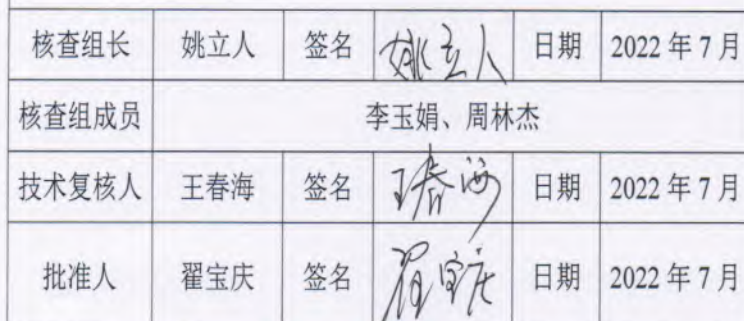 核查组长 姚立人 签名 姚立人 日期 2022 年 7 月
核查组成员 李玉娟、周林杰
技术复核人 王春海 签名 王春海 日期 2022 年 7 月
批准人 翟宝庆 签名 翟宝庆 日期 2022 年 7 月